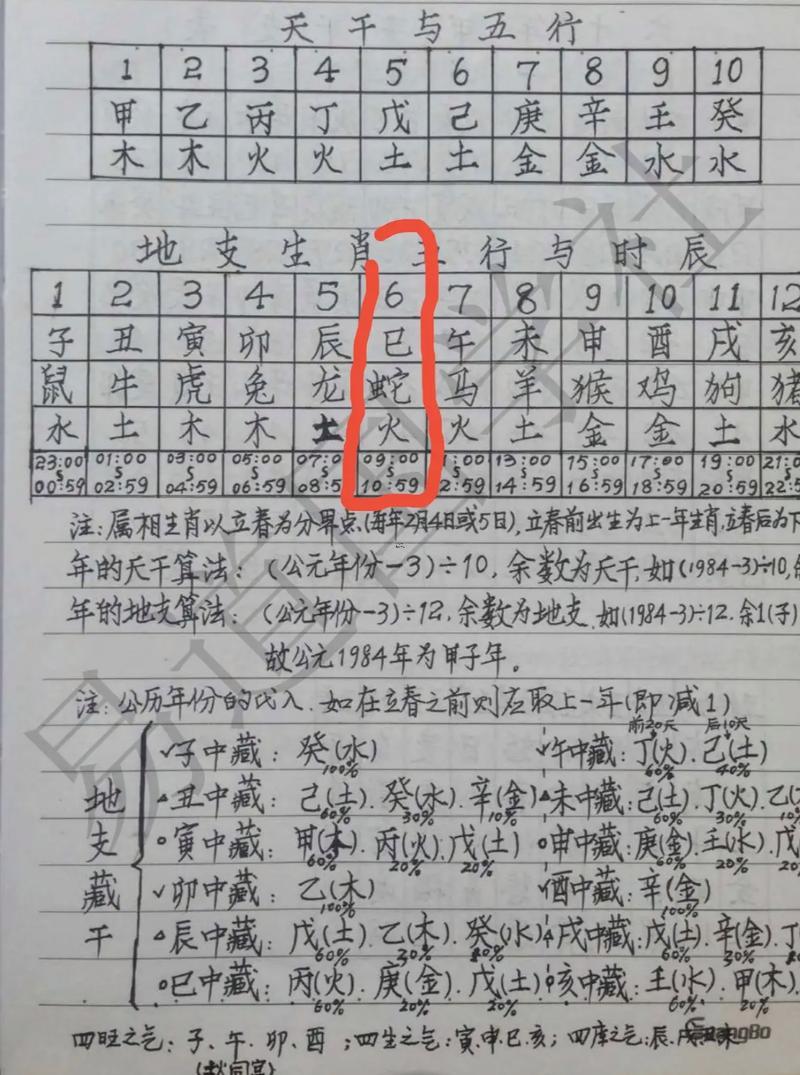 天干与五行
1 2 3 4 5 6 7 8 9 10
甲 乙 丙 丁 戊 己 庚 辛 壬 癸
木 木 火 火 土 土 金 金 水 水
地支生肖五行与时辰
1 2 3 4 5 6 7 8 9 10 11 12
子 丑 寅 卯 辰 巳 午 未 申 酉 戌 亥
鼠 牛 虎 兔 龙 蛇 马 羊 猴 鸡 狗 猪
水 土 木 木 土 火 火 土 金 金 土 水
23:00 01:00 03:00 05:00 07:0 09:00 1:00 13:00 15:00 17:00 19:00 21:0
00:59 02:59 04:59 06:59 08:5 10:59 2:59 14:59 16:59 18:59 20:59 22:5
注:属相生肖以立春为分界点,(每年2月4日或5日),立春前出生为上一年生肖,立春后为下
年的天干算法:(公元年份-3)÷10,余数为天干,如(1984-3)÷10,
年的地支算法:(公元年份-3)÷12,余数为地支.如(1984-3)÷12.余1(子)
故公元1984年为甲子年。
注:公历年份的代入.如在立春之前则应取上一年(即减1)
前20天 后10天
子中藏:癸(水) 午中藏:丁(火).己(土)
100% 60% 40%
地 丑中藏:己(土).癸(水).辛(金) 未中藏:己(土).丁(火).乙(
60% 30% 10% 60% 30% 10%
支 寅中藏:甲(木).丙(火).戊(土) 申中藏:庚(金).壬(水).戊
60% 20% 20% 60% 20%
藏 卯中藏:乙(木) 酉中藏:辛(金)
100% 100%
干 辰中藏:戊(土).乙(木).癸(水) 戌中藏:戊(土).辛(金).丁
60% 30% 60% 30%
巳中藏:丙(火).庚(金).戊(土) 亥中藏:壬(水).甲(木).
60% 20% 20% 60% 20%
四旺之气:子、午、卯、酉;四生之气:寅.申.巳.亥;四库之气:辰.戌.丑.未
易道国学社